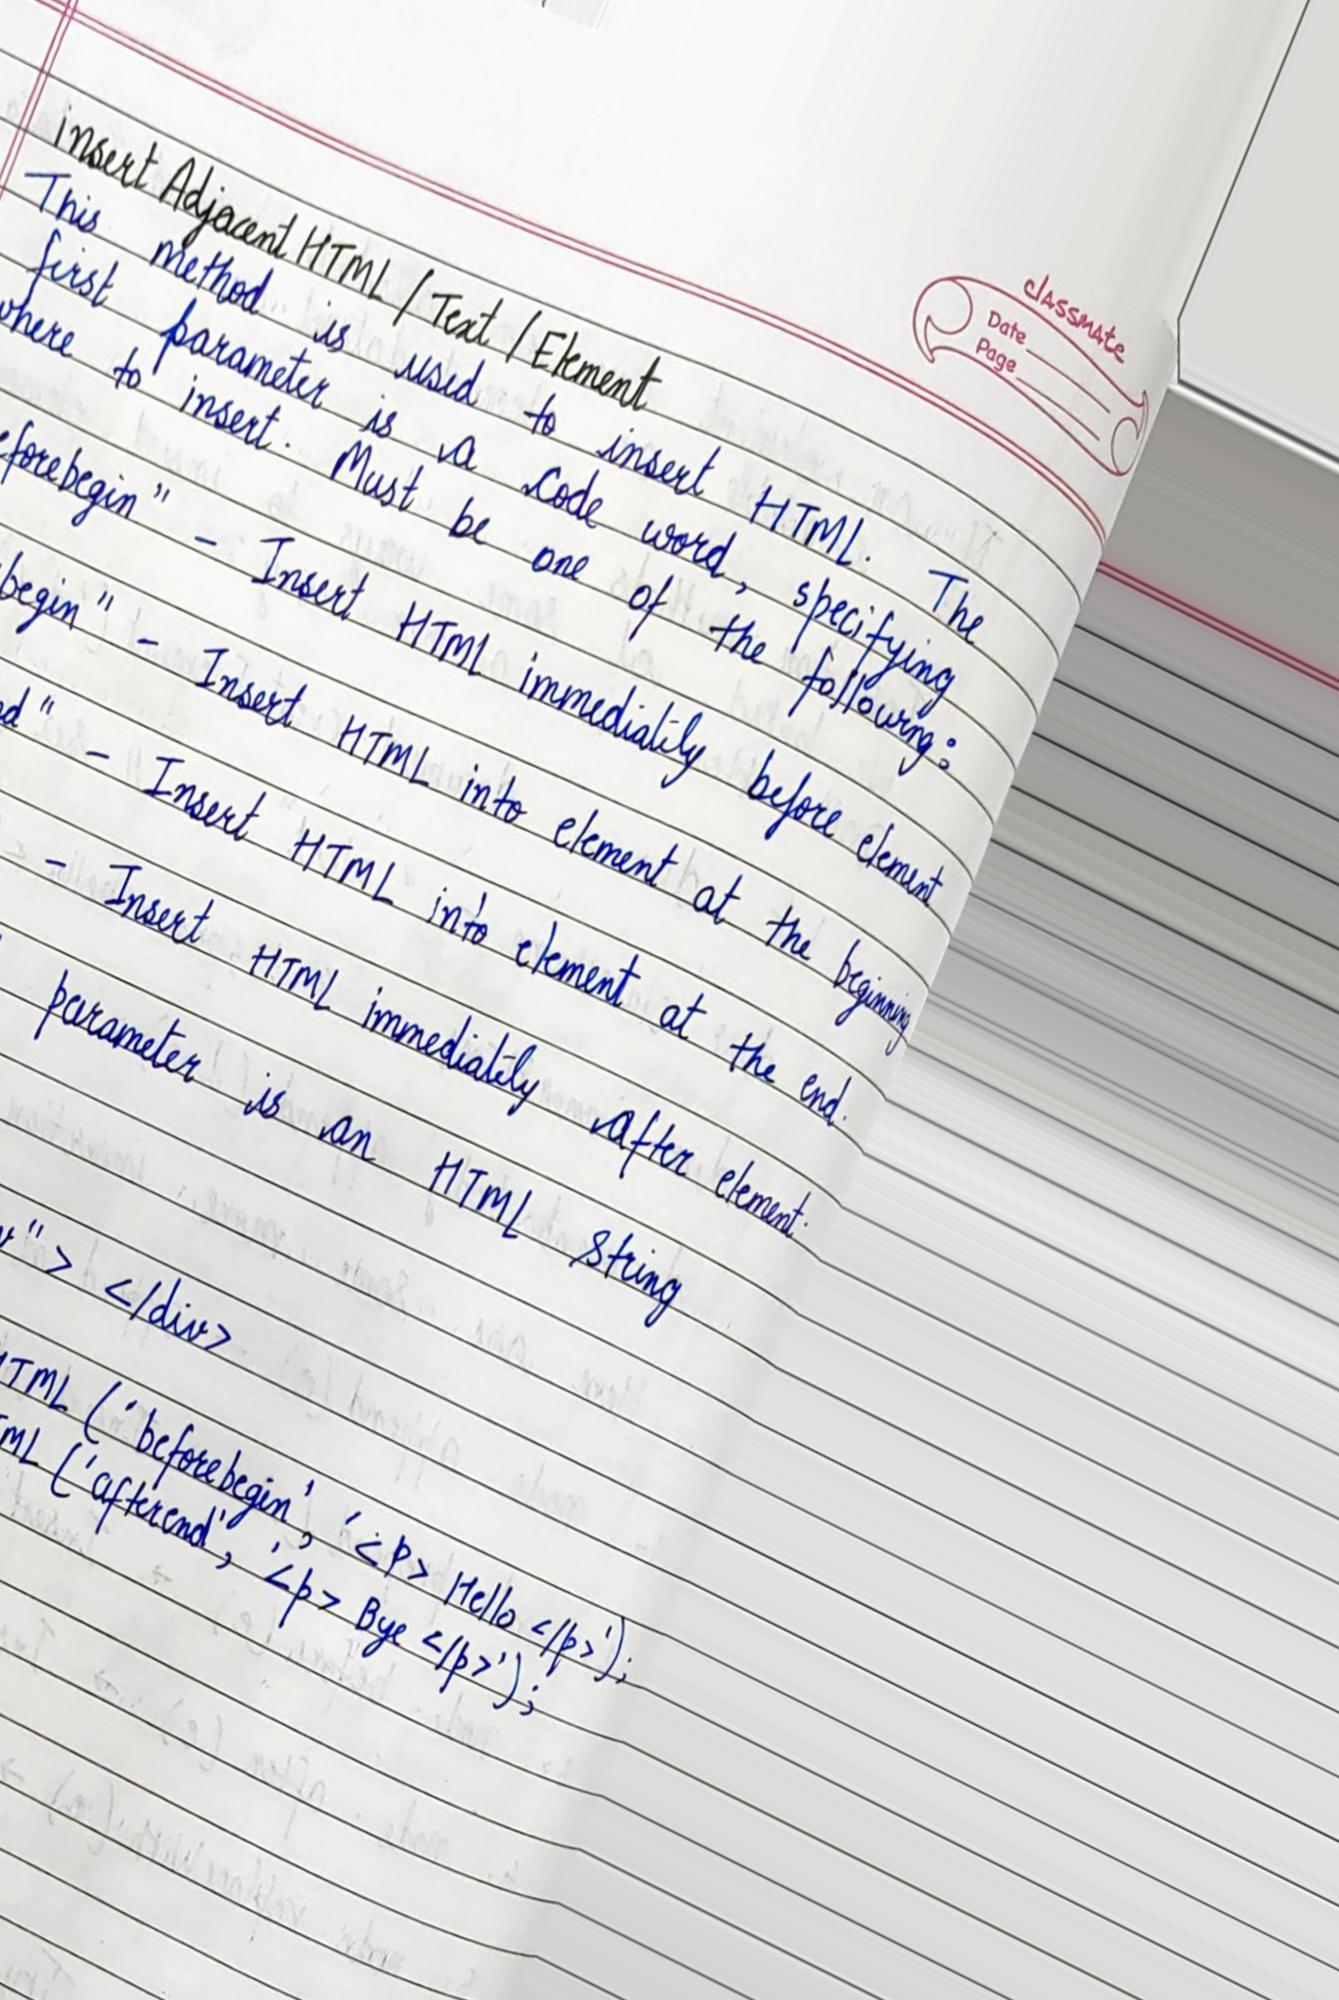 classmate
Date
Page
insert Adjacent HTML / Text / Element
This method is used to insert HTML. The
first parameter is a code word, specifying
where to insert. Must be one of the following:
eforebegin" - Insert HTML immediatily before element
begin" - Insert HTML into element at the beginning
d" - Insert HTML into element at the end.
- Insert HTML immediatily after element.
parameter is an HTML string
"> </div>
HTML ('beforebegin', '<p> Hello </p>');
ML ('afterend', '<p> Bye </p>');